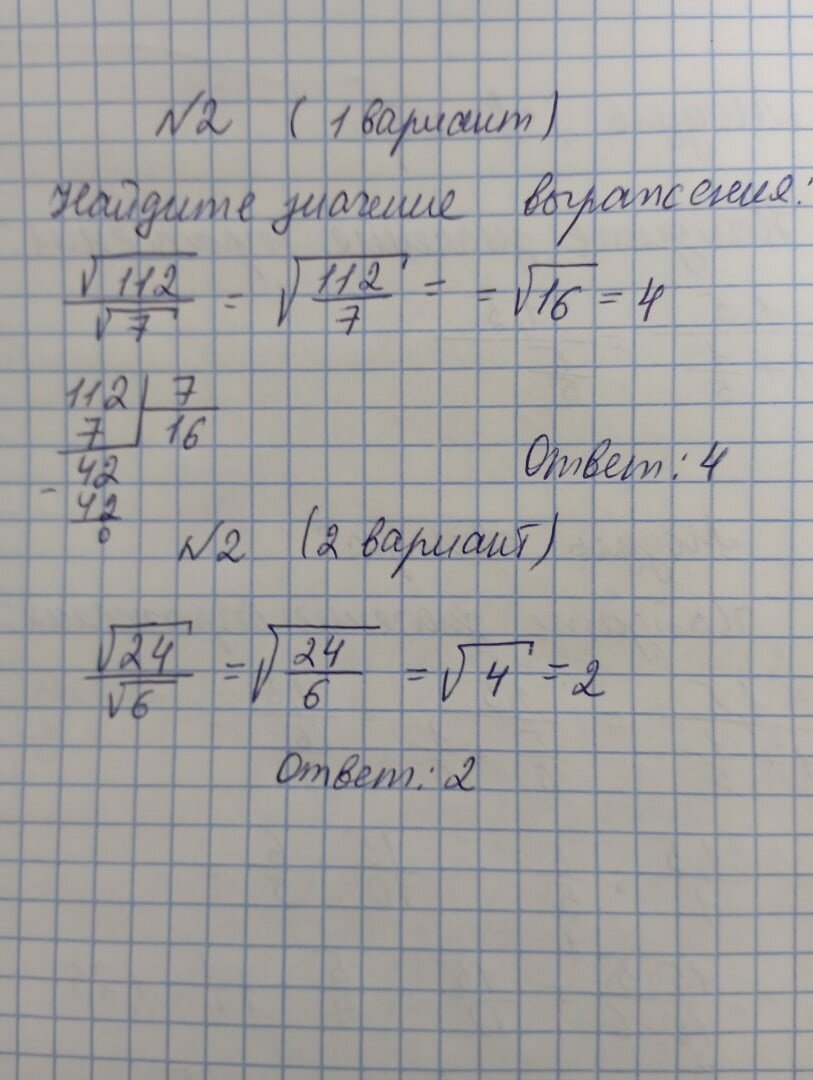 №2 (1 вариант)
Найдите значение выражения:
√112 / √7 = √(112/7) = = √16 = 4
112 | 7
7 | 16
42
- 42
0
Ответ: 4
№2 (2 вариант)
√24 / √6 = √(24/6) = √4 = 2
Ответ: 2